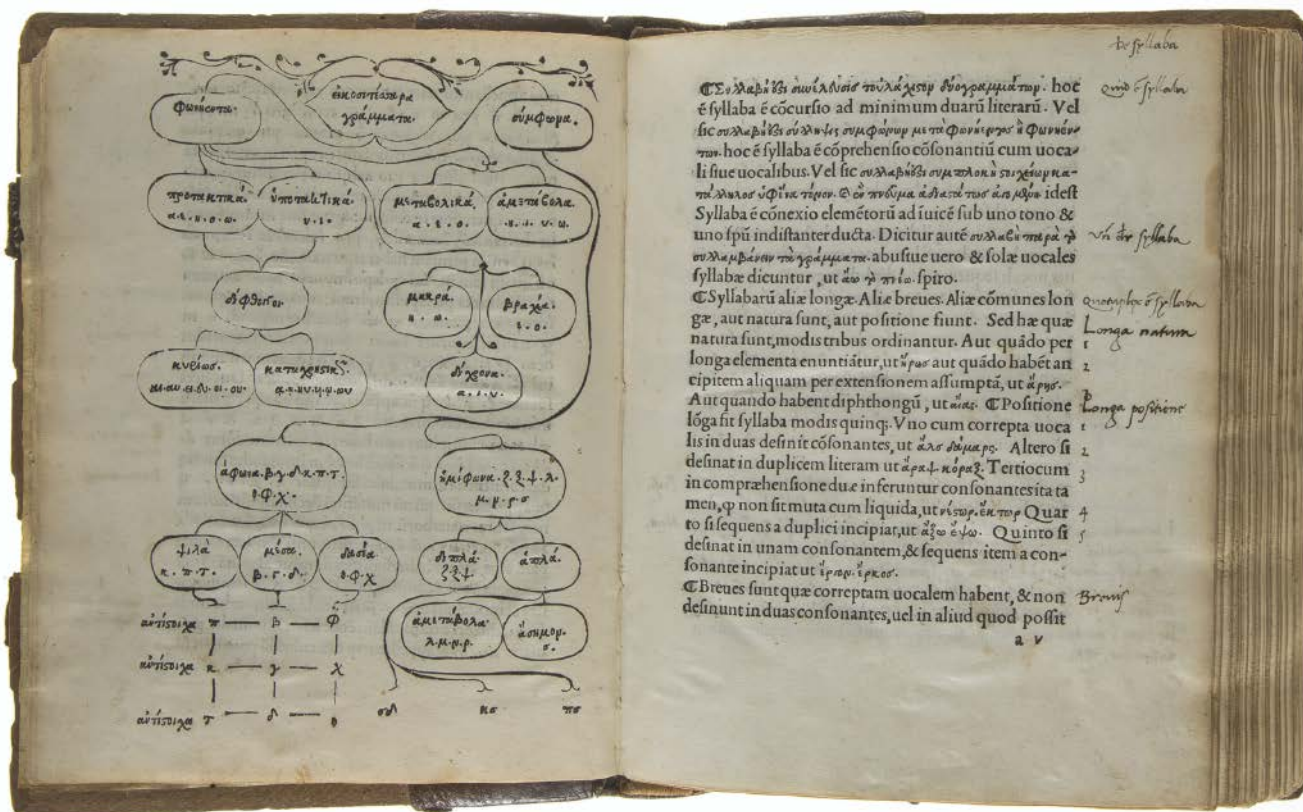 φωνήεντα.
εἰκοσιτέσσαρα
γράμματα.
σύμφωνα.
προτακτικά.
α.ε.η.ο.ω.
ὑποτακτικά.
υ.ι.
μεταβολικά.
α.ε.ο.
ἀμετάβολα.
η.ι.υ.ω.
δίφθογγοι
μακρά.
η.ω.
βραχέα.
ε.ο.
κυρίως.
αι.αυ.ει.ευ.οι.ου.
δίχρονα.
α.ι.υ.
ἄφωνα.β.γ.δ.κ.π.τ.
θ.φ.χ.
ἡμίφωνα.ζ.ξ.ψ.λ.
μ.ν.ρ.σ
ψιλὰ
κ.π.τ.
μέσα.
β.γ.δ.
δασέα
θ.φ.χ
διπλᾶ.
ζ.ξ.ψ.
ἁπλᾶ.
ἀμετάβολα.
λ.μ.ν.ρ.
ἄσημον.
σ.
ἀντίστοιχα π β φ
ἀντίστοιχα κ γ χ
ἀντίστοιχα τ δ θ
σδ κσ πσ
de syllaba
⁋Συλλαβή ἐστι συνέλευσις τοὐλάχιστον δύο γραμμάτων. hoc
quid ē syllaba
ē syllaba ē cōcursio ad minimum duarū literarū. Vel
sic συλλαβή ἐστι σύλληψις συμφώνων μετὰ φωνήεντος ἢ φωνηέν⸗
των. hoc ē syllaba ē cōprehensio cōsonantiū cum uoca⸗
li siue uocalibus. Vel sic συλλαβή ἐστι συμπλοκὴ στοιχείων κα⸗
τάλληλος ὑφ' ἕνα τόνον. καὶ ἓν πνεῦμα ἀδιαστάτως idest
Syllaba ē cōnexio elemētorū ad iuicē sub uno tono &
uno spū indistanter ducta. Dicitur autē συλλαβὴ παρὰ τὸ
syllaba
συλλαμβάνειν τὰ γράμματα. abusiue uero & solæ uocales
syllabæ dicuntur, ut ἄω τὸ πνέω. spiro.
⁋Syllabarū aliæ longæ. Aliæ breues. Aliæ cōmunes lon
Quotuplex ē syllaba
gæ, aut natura sunt, aut positione fiunt. Sed hæ quæ
Longa natura
natura sunt, modis tribus ordinantur. Aut quādo per
1
longa elementa enuntiātur, ut ἥρως aut quādo habēt an
2
cipitem aliquam per extensionem assumptā, ut ἄρης.
3
Aut quando habent diphthongū, ut αἴας. ⁋Positione
Longa positione
lōga fit syllaba modis quinq;. Vno cum correpta uoca
1
lis in duas desinit cōsonantes, ut ἅλς δάμαρς. Altero si
2
desinat in duplicem literam ut ἄραψ κόραξ. Tertio cum
3
in compræhensione duæ inferuntur consonantes ita ta
men, ꝙ non sit muta cum liquida, ut νέστωρ. ἕκτωρ Quar
4
to si sequens a duplici incipiat, ut ἄξω ἕψω. Quinto si
5
desinat in unam consonantem, & sequens item a con⸗
sonante incipiat ut ἔρκος.
⁋Breues sunt quæ correptam uocalem habent, & non
Brevis
desinunt in duas consonantes, uel in aliud quod possit
a v